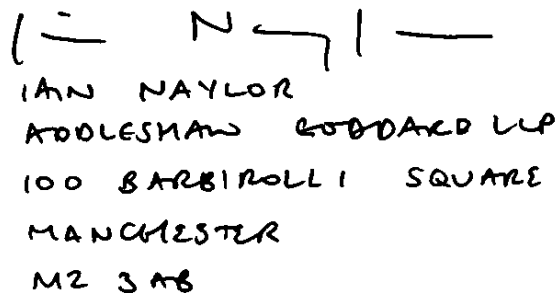 IAIN NAYLOR
ADDLESHAW GODDARD LLP
100 BARBIROLLI SQUARE
MANCHESTER
M2 3AB